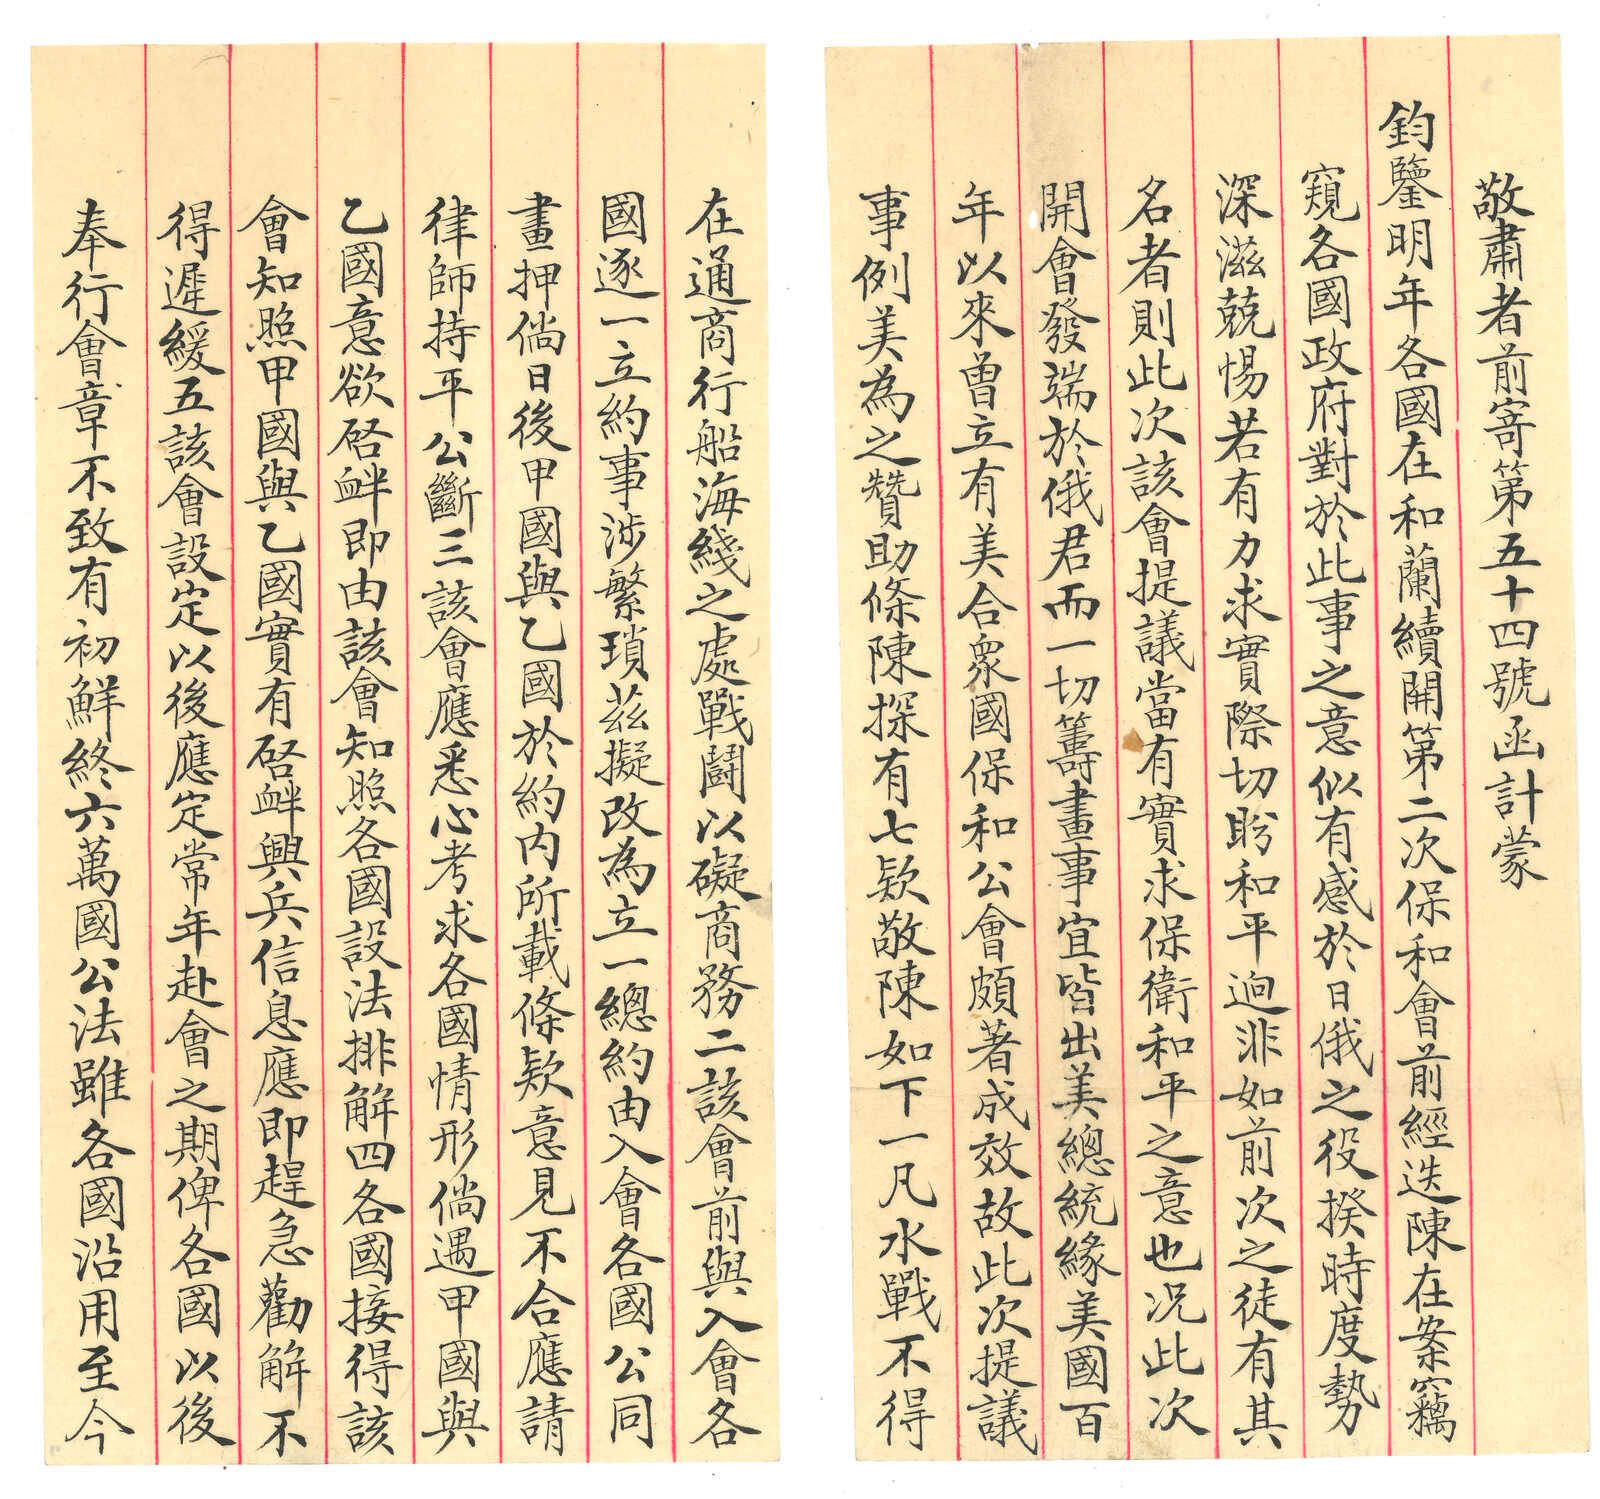 敬肅者前寄第五十四號函計蒙
鈞鑒明年各國在和蘭續開第二次保和會前經迭陳在案竊
窺各國政府對於此事之意似有感於日俄之役揆時度勢
深滋兢惕若有力求實際切盼和平迥非如前次之徒有其
名者則此次該會提議當有實求保衛和平之意也况此次
開會發端於俄君而一切籌畫事宜皆出美總統緣美國百
年以來曾立有美合衆國保和公會頗著成效故此次提議
事例美為之贊助條陳探有七欵敬陳如下一凡水戰不得
在通商行船海綫之處戰鬪以礙商務二該會前與入會各
國逐一立約事涉繁瑣茲擬改為立一總約由入會各國公同
畫押倘日後甲國與乙國於約內所載條欵意見不合應請
律師持平公斷三該會應悉心考求各國情形倘遇甲國與
乙國意欲啓衅即由該會知照各國設法排解四各國接得該
會知照甲國與乙國實有啓衅興兵信息應即趕急勸解不
得遲緩五該會設定以後應定常年赴會之期俾各國以後
奉行會章不致有初鮮終六萬國公法雖各國沿用至今